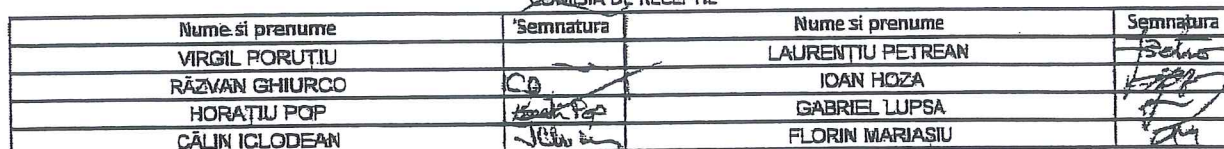 COMISIA DE RECEPTIE
Nume si prenume Semnatura Nume si prenume Semnatura
VIRGIL PORUȚIU LAURENȚIU PETREAN
RĂZVAN GHIURCO IOAN HOZA
HORAȚIU POP Horatiu Pop GABRIEL LUPSA
CĂLIN ICLODEAN FLORIN MARIAȘIU